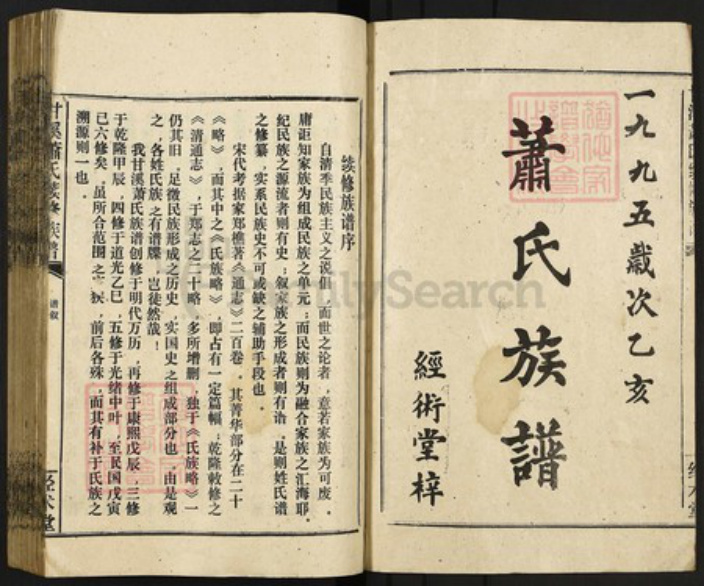 一九九五歲次乙亥
蕭氏族譜
經術堂梓
续修族谱序
自清季民族主义之说倡，而世之论者，意若家族为可废。
庸讵知家族为组成民族之单元；而民族则为融合家族之汇海耶。
纪民族之源流者则有史；叙家族之形成者则有谱。是则姓氏谱
之修纂，实系民族史不可或缺之辅助手段也。
宋代考据家郑樵著《通志》二百卷。其菁华部分在二十
《略》，而其中之《氏族略》，即占有一定篇幅；乾隆敕修之
《清通志》，于郑志之二十略，多所增删，独于《氏族略》一
仍其旧，足徵民族形成之历史，实国史之组成部分也，由是观
之，各姓氏族之有谱牒，岂徒然哉！
我甘溪萧氏族谱创修于明代万历，再修于康熙戊辰，三修
于乾隆甲辰，四修于道光乙巳，五修于光绪中叶，至民国戊寅
已六修矣。虽所合范围之，前后各殊，而其有补于氏族之
溯源则一也。
甘溪萧氏续修族谱
谱叙
经术堂
FamilySearch